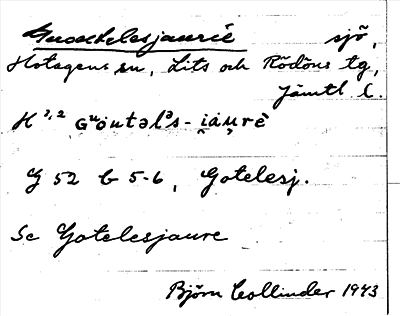 Guoutelesjaurie sjö,
Hotagens sn, Lits och Rödöns tg,
Jämtl l.
H 1,2 Gᵘöutəlᵊs-i̯äu̯rē
G 52 b 5-6, Gotelesj.
Se Gotelesjaure
Björn Collinder 1943